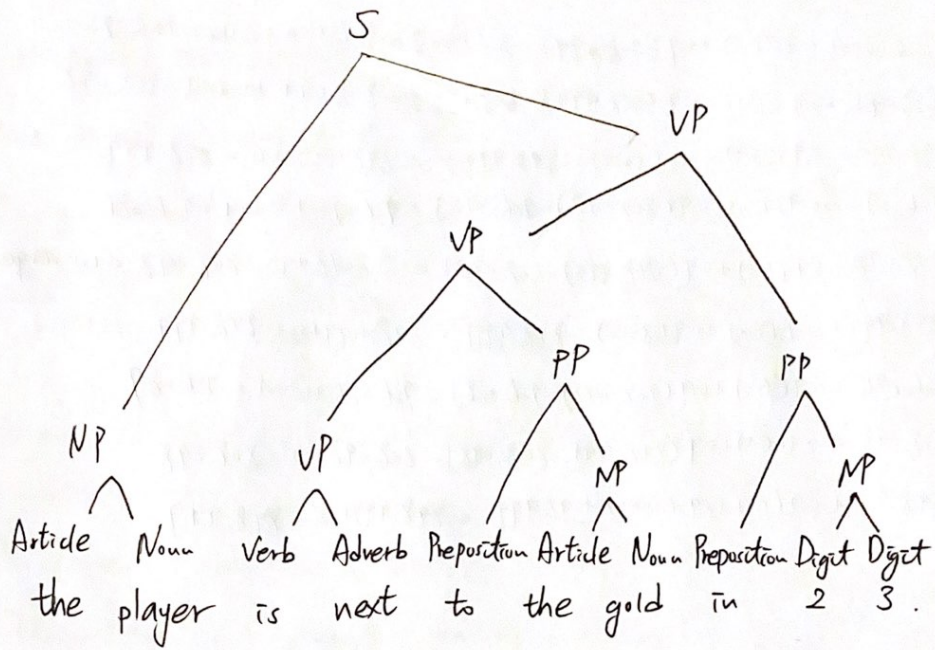 S
VP
VP
PP
PP
NP
VP
NP
NP
Article Noun Verb Adverb Preposition Article Noun Preposition Digit Digit
the player is next to the gold in 2 3.